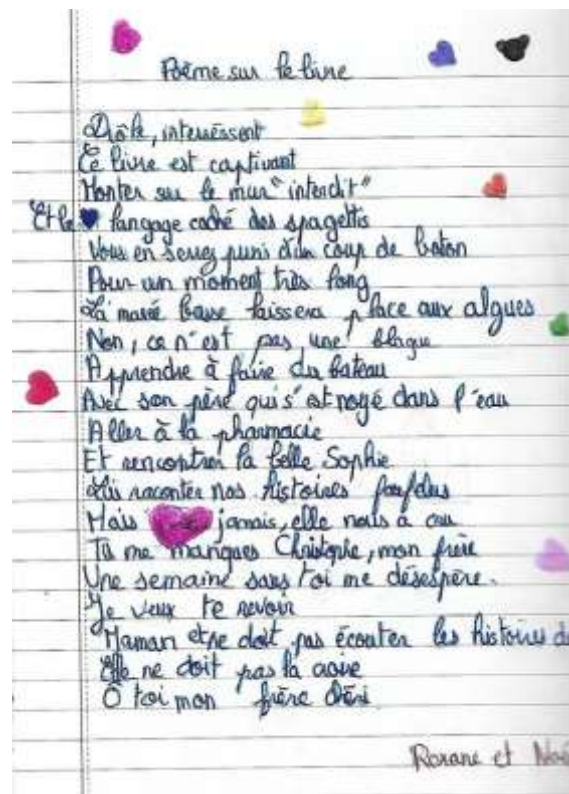 Poème sur le livre
Drôle, interessent
Ce livre est captivant
Monter sur le mur "interdit"
Et le langage caché des spagettis
Vous en serez puni d'un coup de baton
Pour un moment très long
La marée basse laissera place aux algues
Non, ce n'est pas une blague
Apprendre à faire du bateau
Avec son père qui s'est noyé dans l'eau
Aller à la pharmacie
Et rencontrer la belle Sophie
Lui raconter nos histoires
Mais jamais, elle nous a cru
Tu me manques Christophe, mon frère
Une semaine sans toi me désespère.
Je veux te revoir
Maman ne doit pas écouter les histoires
Elle ne doit pas la croire
Ô toi mon frère chéri
Roxane et